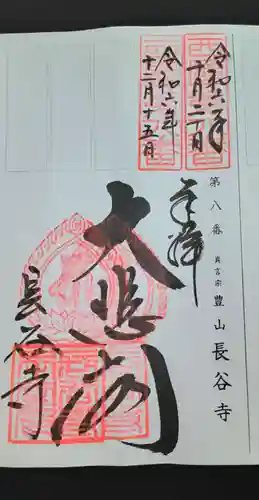 令和六年
十月二十日
令和六年
十二月十五日
第八番 真言宗 豊山 長谷寺
奉拝
大悲閣
長谷寺